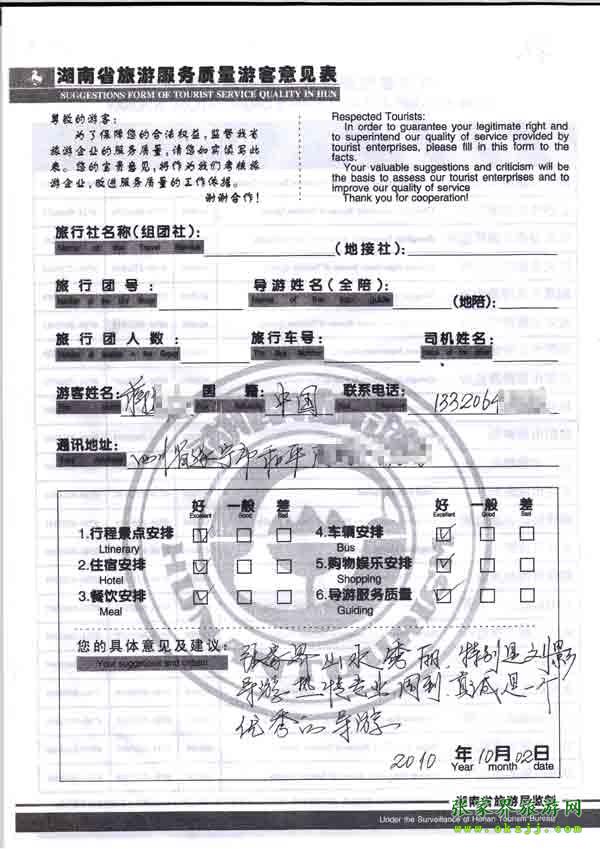 湖南省旅游服务质量游客意见表
SUGGESTIONS FORM OF TOURIST SERVICE QUALITY IN HUN
尊敬的游客:
为了保障您的合法权益,监督我省
旅游企业的服务质量,请您如实填写此
表。您的宝贵意见,将作为我们考核旅
游企业,改进服务质量的工作依据。
谢谢合作!
Respected Tourists:
In order to guarantee your legitimate right and
to superintend our quality of service provided by
tourist enterprises, please fill in this form to the
facts.
Your valuable suggestions and criticism will be
the basis to assess our tourist enterprises and to
improve our quality of service
Thank you for cooperation!
旅行社名称(组团社): (地接社):
旅行团号: 导游姓名(全陪): (地陪):
旅行团人数: 旅行车号: 司机姓名:
游客姓名: 国籍: 中国 联系电话: 1332064
通讯地址: 四川省 市和平
好 一般 差 好 一般 差
Excellent Good Bad Excellent Good Bad
1.行程景点安排 4.车辆安排
Ltinerary Bus
2.住宿安排 5.购物娱乐安排
Hotel Shopping
3.餐饮安排 6.导游服务质量
Meal Guiding
您的具体意见及建议: 张家界山水秀丽.特别是刘影
Your suggestions and criticism
导游热情专业周到.真诚是一个
优秀的导游.
2010 年 10 月 02 日
Year month date
湖南省旅游局监制
Under the Surveillance of Hunan Tourism Bureau
张家界旅游网
www.okzjj.com